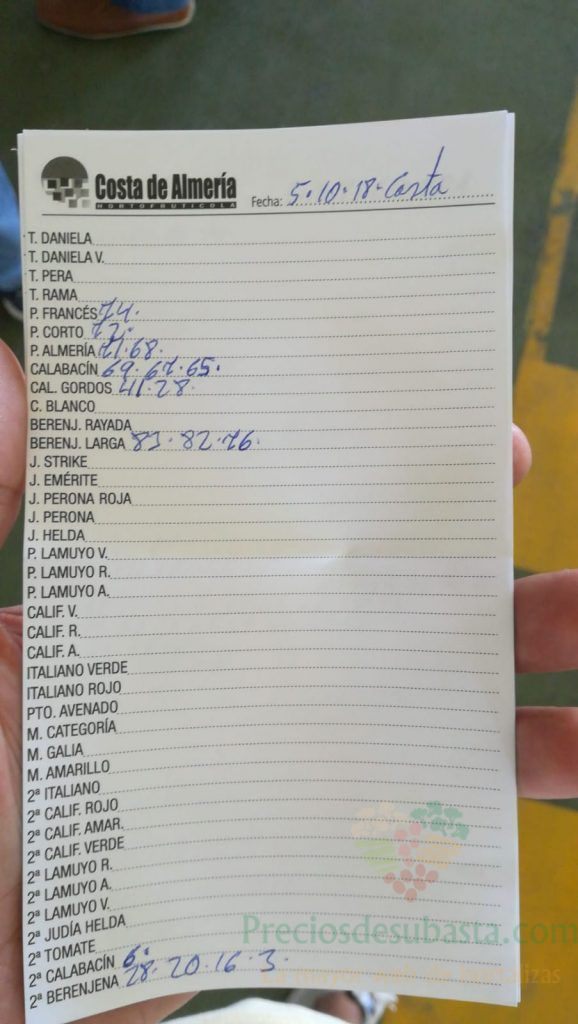 Costa de Almería
HORTOFRUTICOLA
Fecha: 5·10·18·Costa
T. DANIELA
T. DANIELA V.
T. PERA
T. RAMA
P. FRANCÉS 74.
P. CORTO 72.
P. ALMERÍA 71.68.
CALABACÍN 69.67.65.
CAL. GORDOS 41.28.
C. BLANCO
BERENJ. RAYADA
BERENJ. LARGA 83.82.76.
J. STRIKE
J. EMÉRITE
J. PERONA ROJA
J. PERONA
J. HELDA
P. LAMUYO V.
P. LAMUYO R.
P. LAMUYO A.
CALIF. V.
CALIF. R.
CALIF. A.
ITALIANO VERDE
ITALIANO ROJO
PTO. AVENADO
M. CATEGORÍA
M. GALIA
M. AMARILLO
2ª ITALIANO
2ª CALIF. ROJO
2ª CALIF. AMAR.
2ª CALIF. VERDE
2ª LAMUYO R.
2ª LAMUYO A.
2ª LAMUYO V.
2ª JUDÍA HELDA
2ª TOMATE
2ª CALABACÍN 6.
2ª BERENJENA 28.20.16.3.
Preciosdesubasta.com
La mayor web de hortalizas